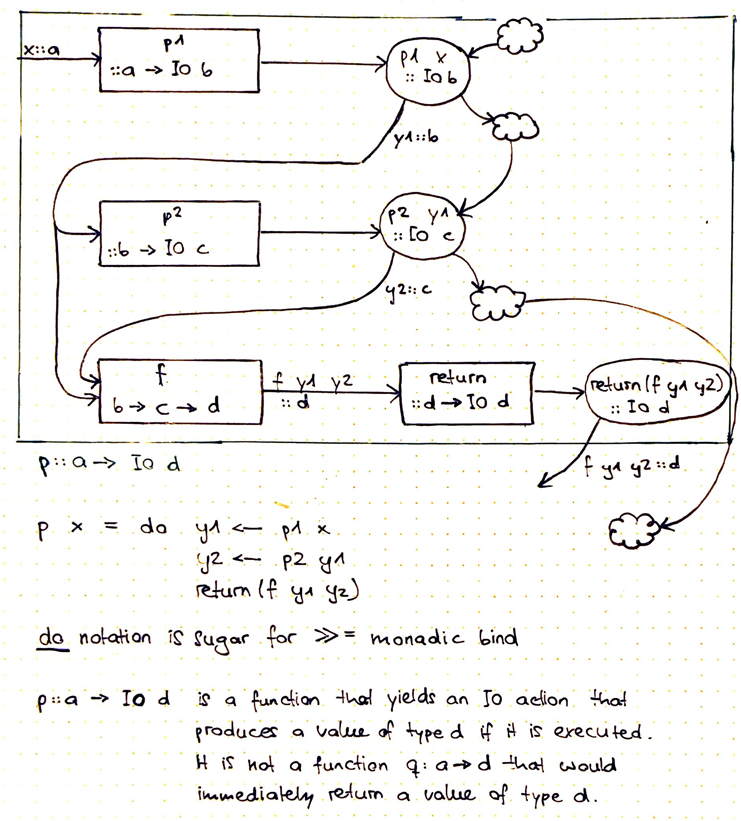 x::a
p1
::a → IO b
p1 x
:: IO b
y1::b
p2
::b → IO c
p2 y1
:: IO c
y2::c
f
b → c → d
f y1 y2
:: d
return
::d → IO d
return (f y1 y2)
:: IO d
f y1 y2 ::d
p::a → IO d
p x = do y1 ← p1 x
y2 ← p2 y1
return (f y1 y2)
do notation is sugar for >>= monadic bind
p::a → IO d is a function that yields an IO action that
produces a value of type d if it is executed.
It is not a function q: a → d that would
immediately return a value of type d.